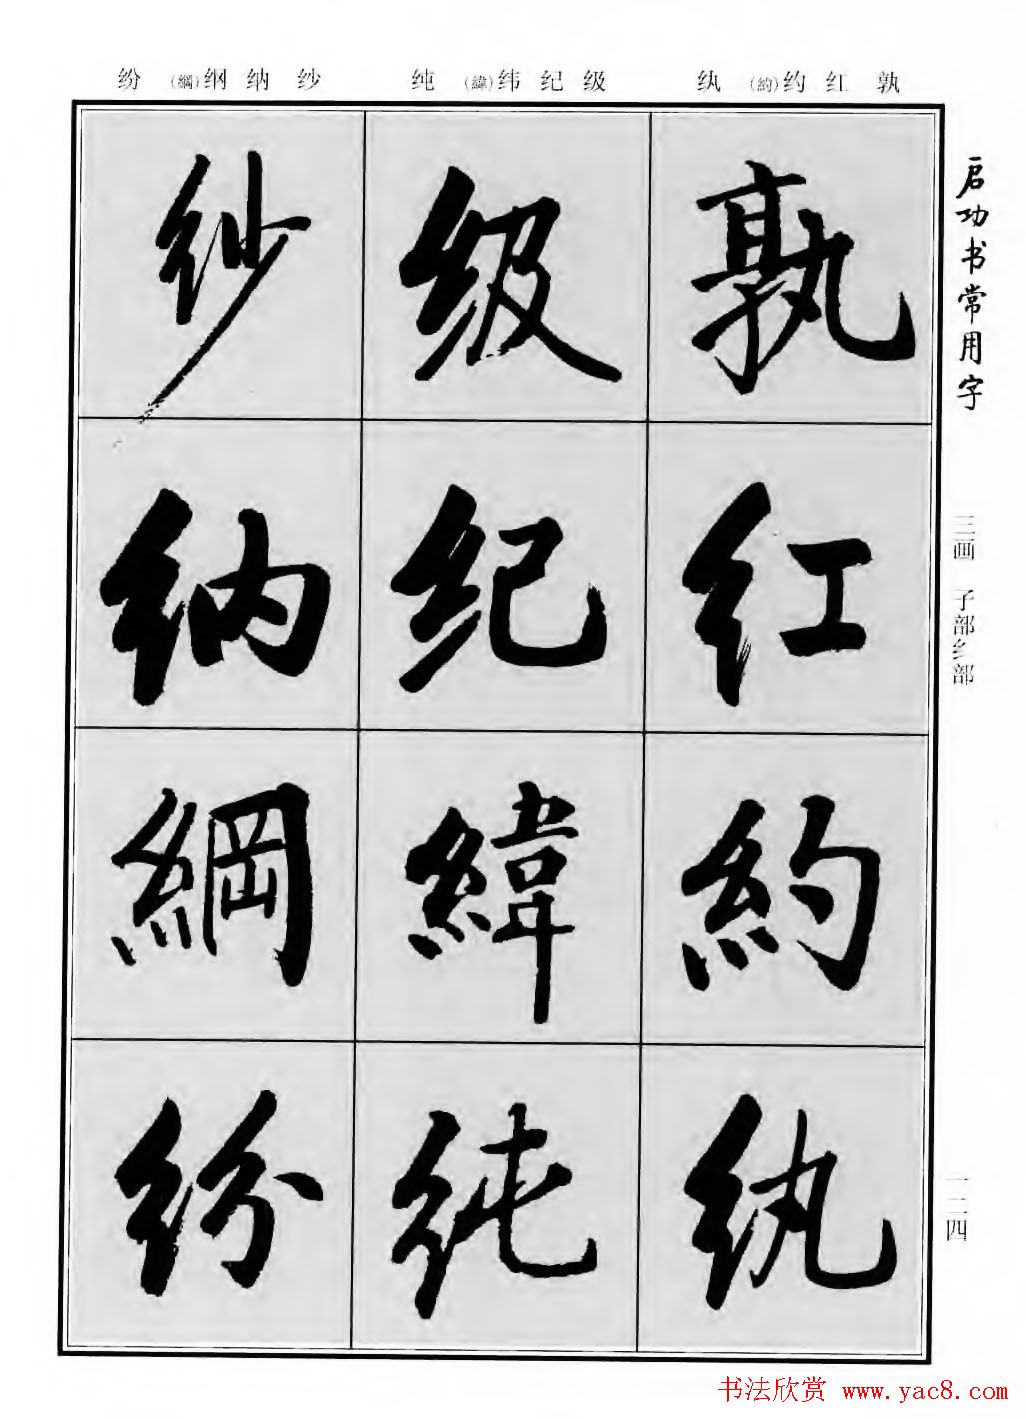 孰 红 约(約) 纨
级 纪 纬(緯) 纯
纱 纳 纲(綱) 纷
启功书常用字
三画 子部纟部
一二四
孰
红
約
纨
级
纪
緯
纯
纱
纳
綱
纷
书法欣赏 www.yac8.com